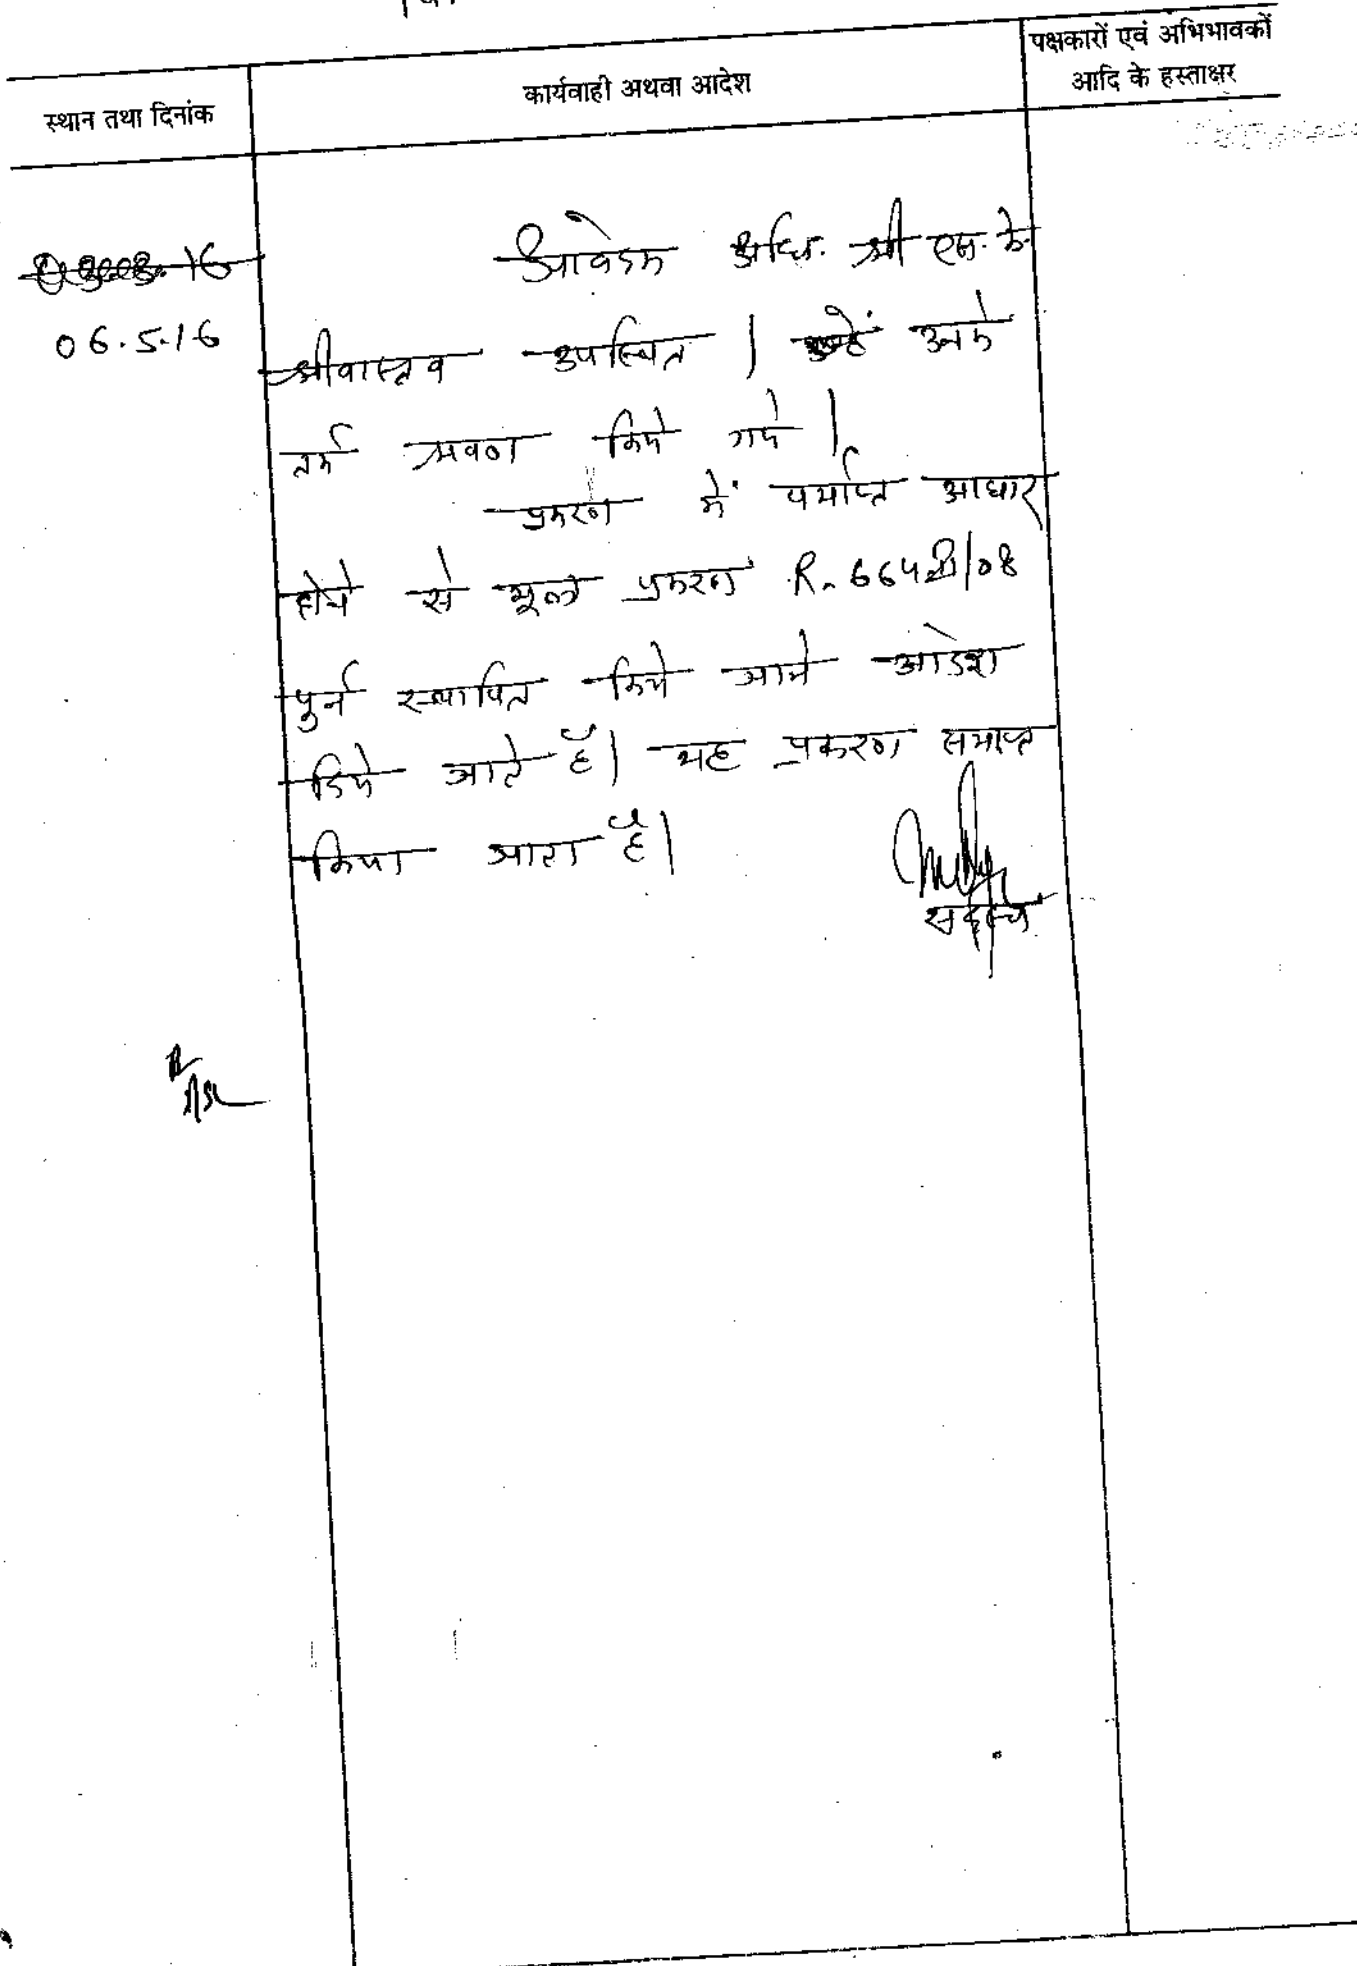 स्थान तथा दिनांक
कार्यवाही अथवा आदेश
पक्षकारों एवं अभिभावकों
आदि के हस्ताक्षर
06.5.16
आवेदक अधि. श्री एस. के.
श्रीवास्तव उपस्थित । उनके
तर्क श्रवण किये गये ।
प्रकरण में पर्याप्त आधार
होने से मूल प्रकरण R. 664 /08
पुर्न स्थापित किये जाने आदेश
दिये जाते हैं। यह प्रकरण समाप्त
किया जाता है।
सदस्य